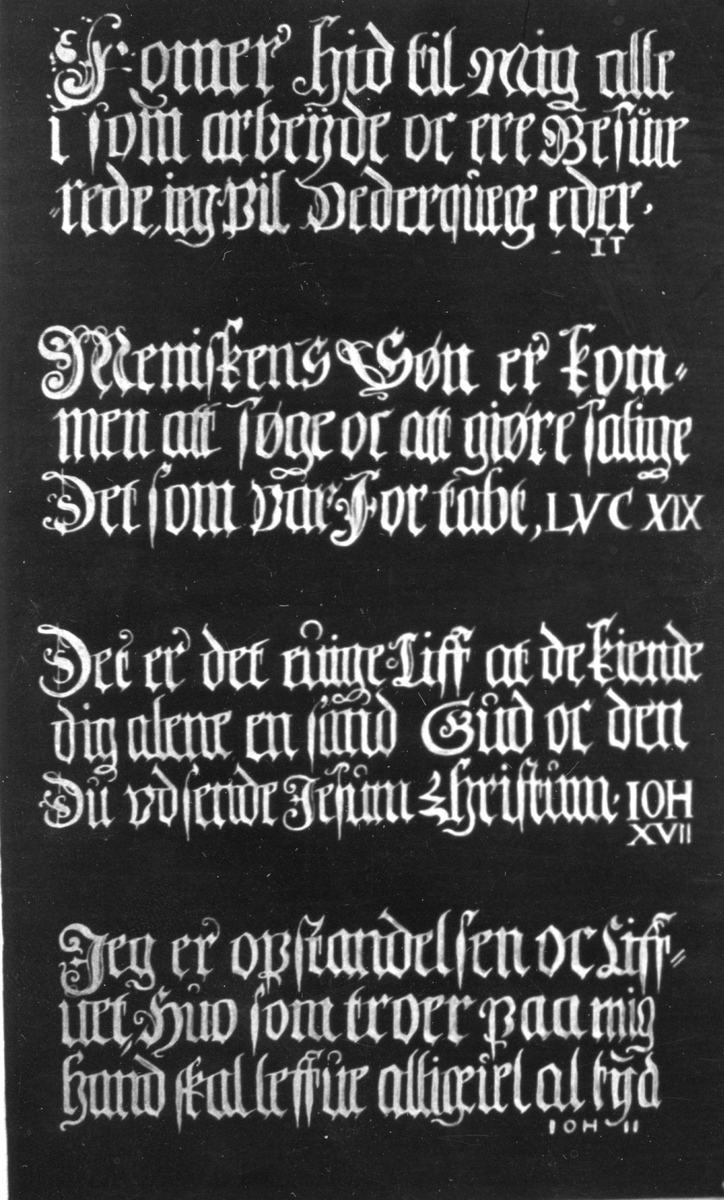 Komer hid til Mig alle
i som arbeÿde oc ere Besue
rede, ieg vil Vederquege eder.
IT
Meniskens Søn er kom=
men att søge oc att giøre salige
Det som var For tabt, LVC XIX
Det er det euige Liff at de kiende
dig alene en sand Gud oc den
Du vdsende Jesum Christum. IOH
XVII
Jeg er opstandelsen oc Liff=
uet, Huo som troer paa mig
hand skal leffue alligeuel al tÿd
IOH II